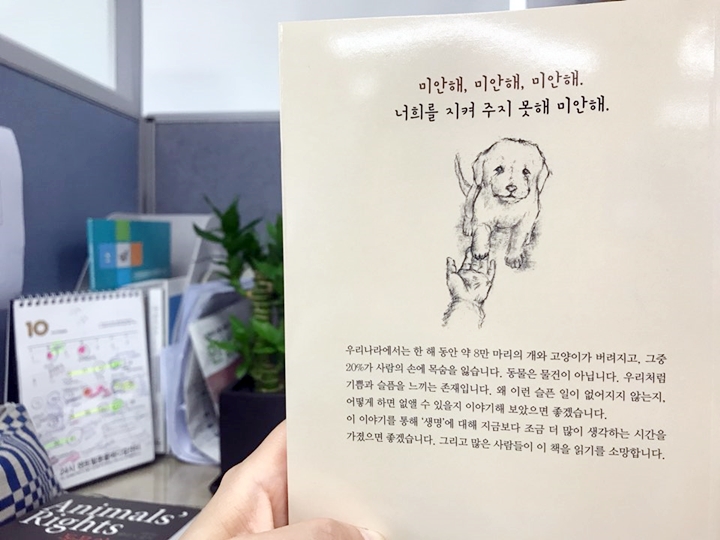 미안해, 미안해, 미안해.
너희를 지켜 주지 못해 미안해.
우리나라에서는 한 해 동안 약 8만 마리의 개와 고양이가 버려지고, 그중
20%가 사람의 손에 목숨을 잃습니다. 동물은 물건이 아닙니다. 우리처럼
기쁨과 슬픔을 느끼는 존재입니다. 왜 이런 슬픈 일이 없어지지 않는지,
어떻게 하면 없앨 수 있을지 이야기해 보았으면 좋겠습니다.
이 이야기를 통해 ‘생명’에 대해 지금보다 조금 더 많이 생각하는 시간을
가졌으면 좋겠습니다. 그리고 많은 사람들이 이 책을 읽기를 소망합니다.
10
24시
Animals'
Rights